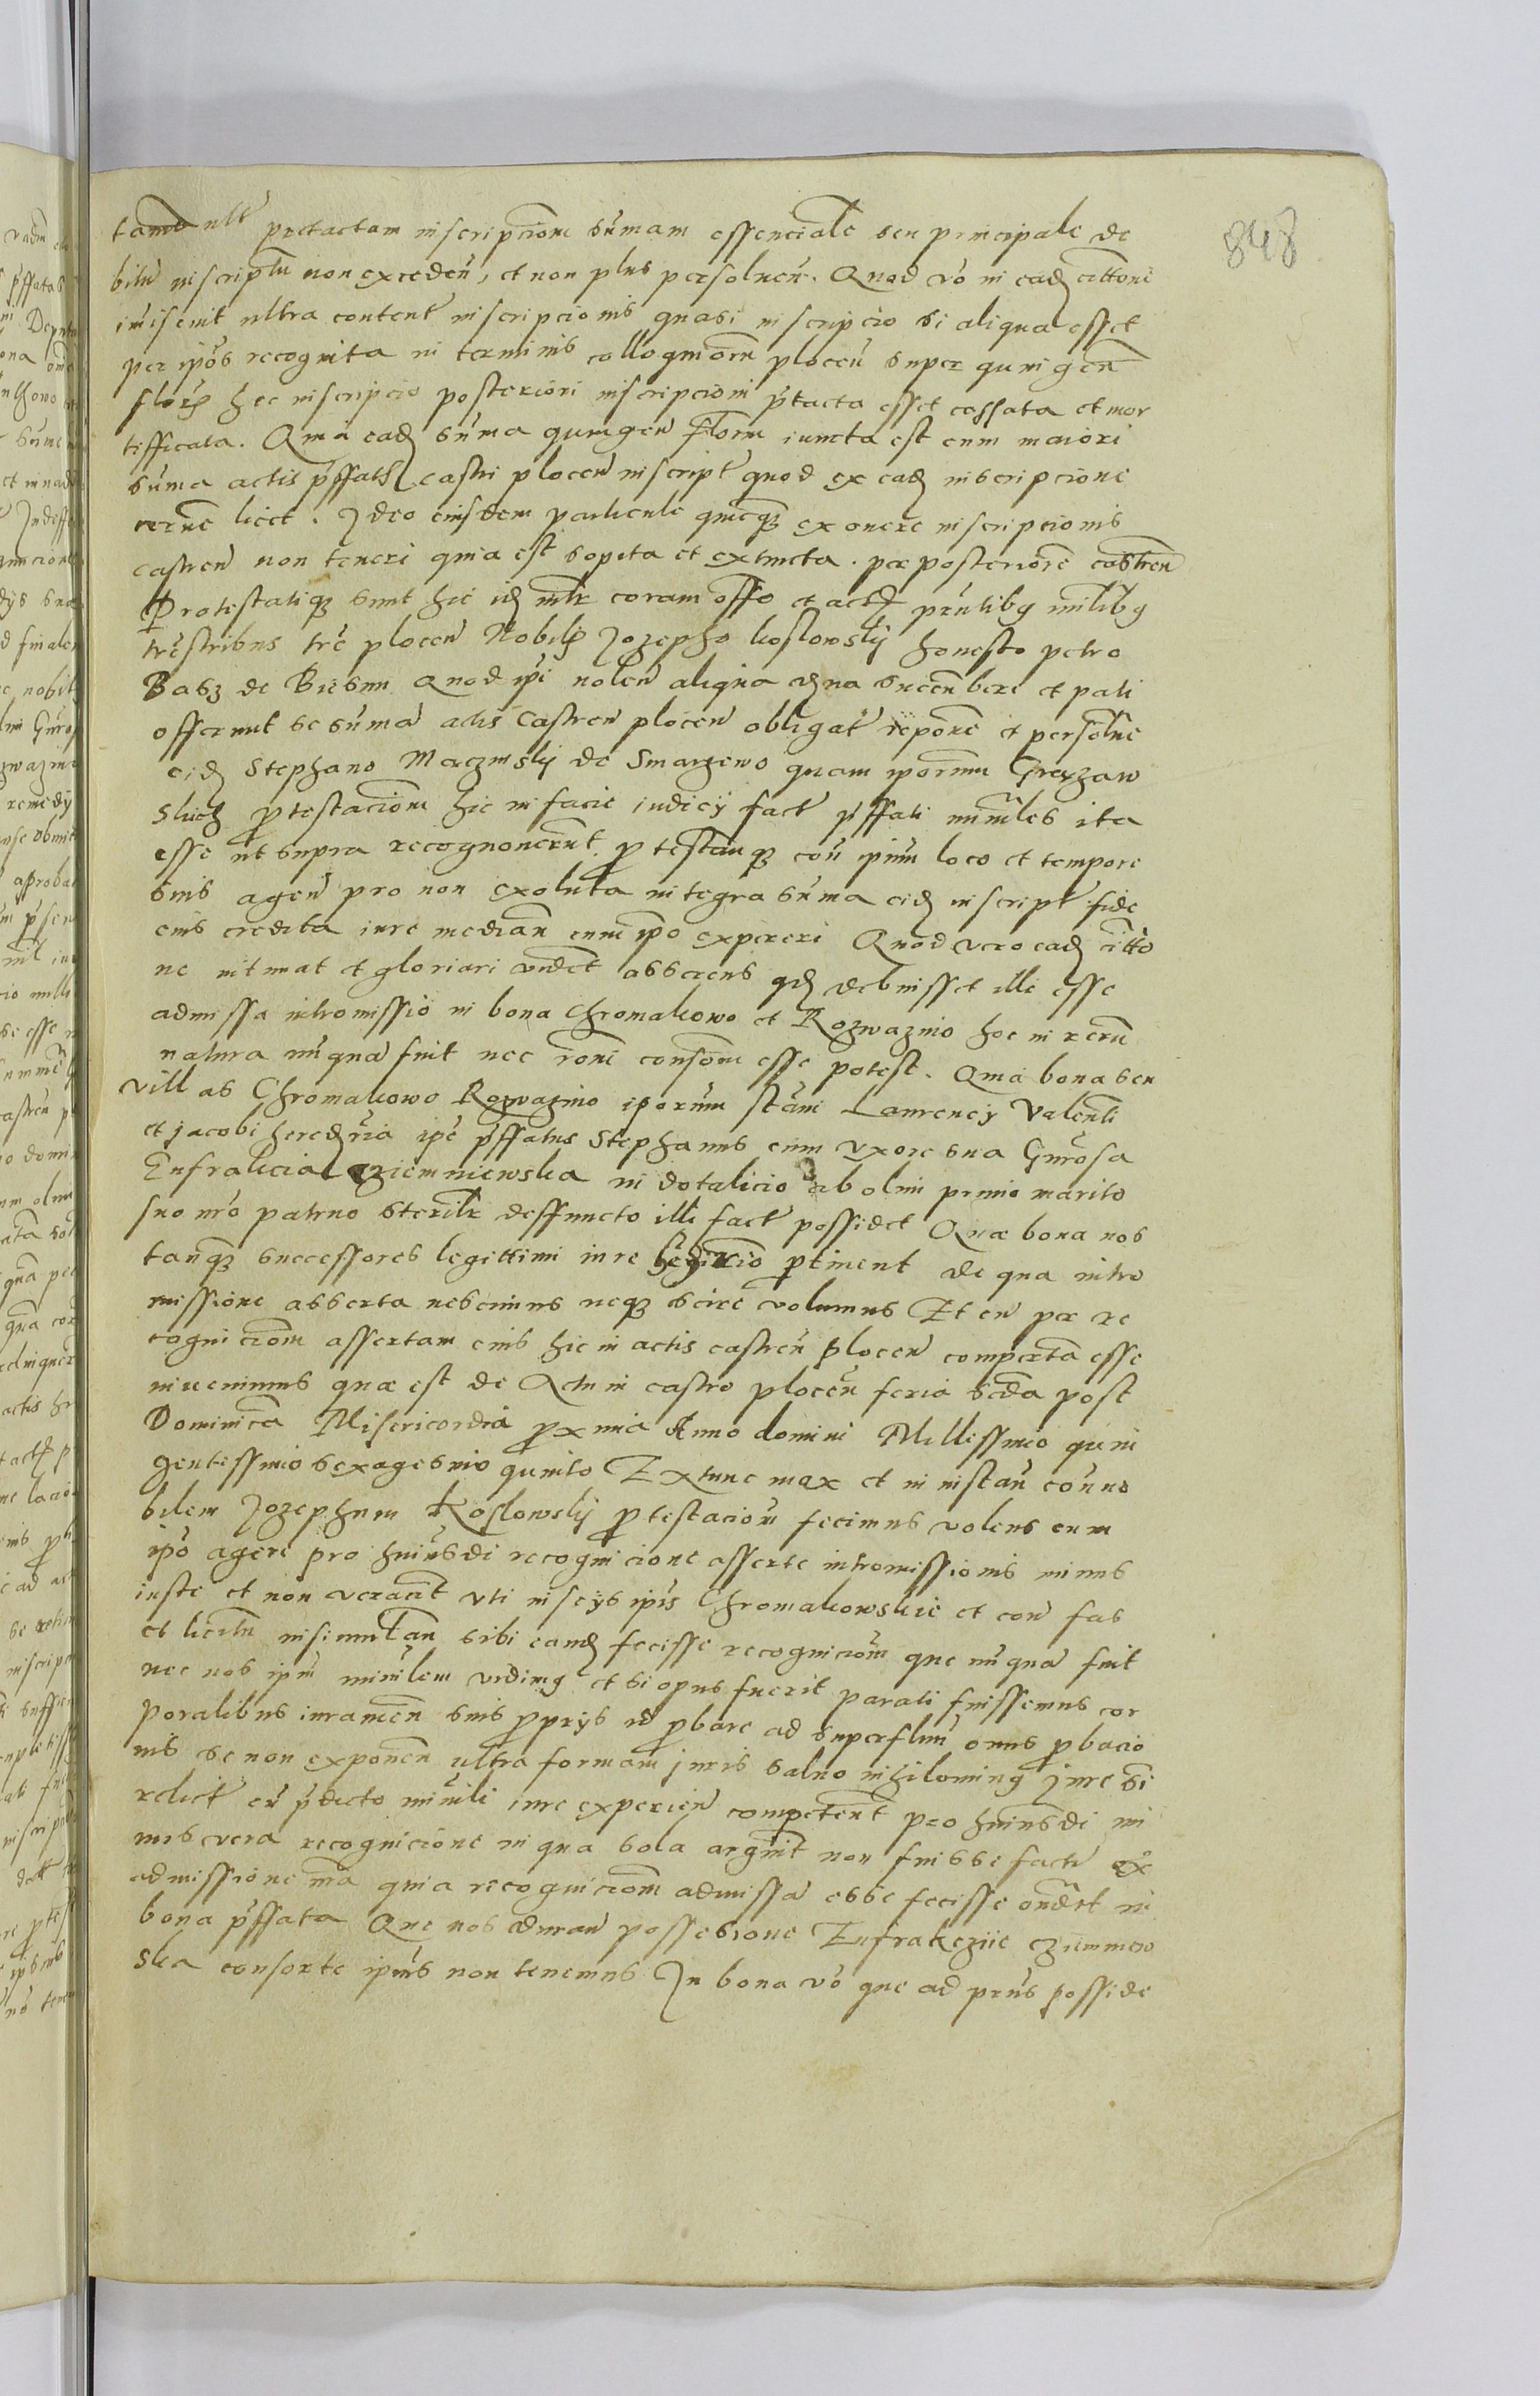 848
tamen ult̃ pretactam inscripcionẽ sũmam essencialẽ seu principale de
bitũ inscriptũ non excedeñ, et non plus persolueñ. Quod v̄o in eadẽ cittone
ĩmiscuit ultra content̃ inscripcionis quasi inscripcio si aliqua esset
per ip̄os recognita in terminis colloquiorũ ploceñ super quingeñ
florẽ hec inscripcio posteriori inscripcioni p̃tacta esset cassata et mor
tifficata. Quia eadẽ sũma quingeñ Floreñ iuncta est cum maiori
sũma actis p̃ffatis castri ploceñ inscript̃ quod ex eadẽ inscripcione
cernẽ licet. Ideo eiusdem particule quicq̃ ex onere inscripcionis
castreñ non teneri quia est sopita et extincta. per posteriorẽ castreñ
Protestatiq̃ sunt hic idẽ coram offo et actẽ prñtibg milibg
trẽstribus trẽ ploceñ Nobilẽ Jozepho koslowskÿ honesto petro
Basz de Biesmi Quod ip̄i noleñ aliqua dãna succũbere et pati
offerunt se sũmã actis Castreñ ploceñ obligat̃ reponẽ et persoluẽ
eidẽ Stephano Maczinskÿ de Smarzewo quam iporum Grazaw
skich p̱testacionẽ hic in facie iudicÿ fact̃ p̃ffati miñiles ita
esse ut supra recognouerũt p̱testãnq̃ coñ ipũm loco et tempore
suis ageñ pro non exoluta integra sũma eidẽ inscript̃ fide
eius credita iure mediañ cum ip̄o expereri Quod vero eadẽ citto
ne nitunt et gloriari videt̃ asserens qdẽ debuisset illi esse
admissa intromissio in bona Chromakowo et Rozwazino hoc in rerũ
natura nũquã fuit nec rõni consonũ esse potest. Quia bona seu
villas Chromakowo Rozwazino iporum Stãni Laurencÿ Valenti
et jacobi heredrĩa ip̃e p̃ffatus Stephanus cum vxore sua Gñrosa
Eufrakcia Cziemniewska in dotalicio ab olim primo marito
suo nr̃o patruo sterilr̃ deffuncto illi fact̃ possidet Quæ bona nos
tanq̃ successores legittimi iure hereditario p̱tinent de qua intro
missione asserta nescimus neq̃ scirẽ volumus Et cũ per re
cognicionẽ assertam eius hic in actis castreñ ploceñ compertã esse
inuenimus quæ est de Actu in castro ploceñ feria scd̃a post
Dominicã Misericordiã p̱xima Anno domini Millessimo quin
gentessimo sexagesimo quinto Extunc max et in instañ coñ no
bilem Jozephum Koslowskÿ p̱testacioñ fecimus volens cum
ip̄o agere pro huiusdi recognicione asserte intromissionis minus
iuste et non veracit̃ vti inscÿs ip̄is Chromakowskie et coñ fas
et licitũ insimulañ sibi eandẽ fecisse recognicioñ que nũquã fuit
nec nos ip̄m miñilem vidimg et si opus fuerit parati fuissemus cor
poralibus iuramẽn suis p̱prÿs id p̱bare ad superfluũ onus p̱bacio
nis se non exponeñ ultra formam juris saluo nihiloming jure si
relict̃ cũ p̃dicto miñili iure experieñ competeñt pro huiusdi mi
nus vera recognicione in qua sola arguit̃ non fuisse fact̃ ex
admissione ĩma quia recognicionẽ admissã esse fecisse onder̃t in
bona p̃ffata Que nos duran̄ possesione Eufrakczÿe cziemniew
ska consorte ipius non tenemus In bona v̄o que ad prñs posside